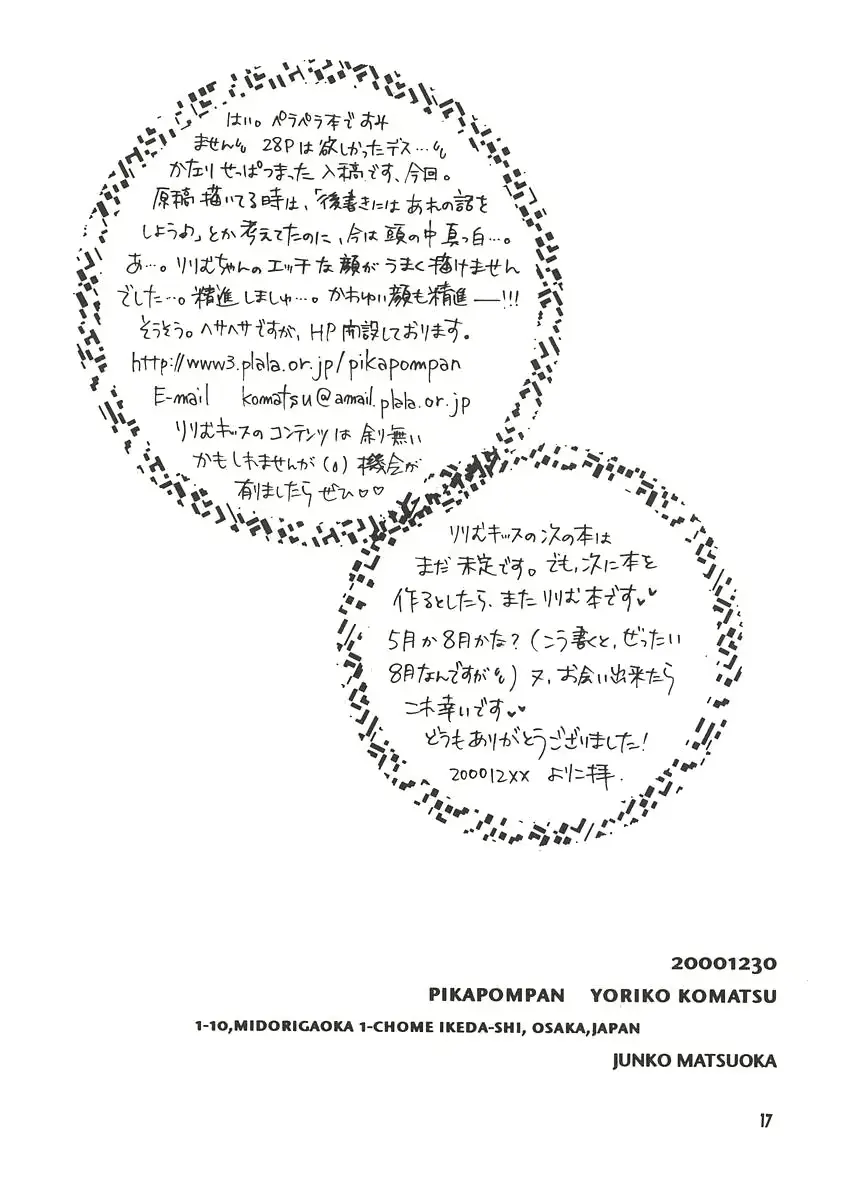 はい。ペラペラ本ですみ
ません 28Pは欲しかったデス…
かなり せっぱつまった 入稿です、今回。
原稿描いてる時は、「後書きには あれの話を
しようよ」とか考えてたのに、今は頭の中真っ白…。
あ…。りりむちゃんのエッチな顔がうまく描けません
でした…。精進しましゅ…。かわゆい顔も精進——!!!
そうそう。ヘサヘサですが、HP開設しております。
http://www3.plala.or.jp/pikapompan
E-mail komatsu@amail.plala.or.jp
りりむキッスのコンテンツは 余り無い
かもしれませんが(〇) 機会が
有りましたら ぜひ♡♡
りりむキッスの次の本は
まだ 未定です。でも、次に本を
作るとしたら、また りりむ本です♥♥
5月か8月かな?(こう書くと、ぜったい
8月なんですが) 又、お会い出来たら
これ幸いです♥♥
どうもありがとうございました!
200012XX よりこ拝.
20001230
PIKAPOMPAN YORIKO KOMATSU
1-10,MIDORIGAOKA 1-CHOME IKEDA-SHI, OSAKA,JAPAN
JUNKO MATSUOKA
17